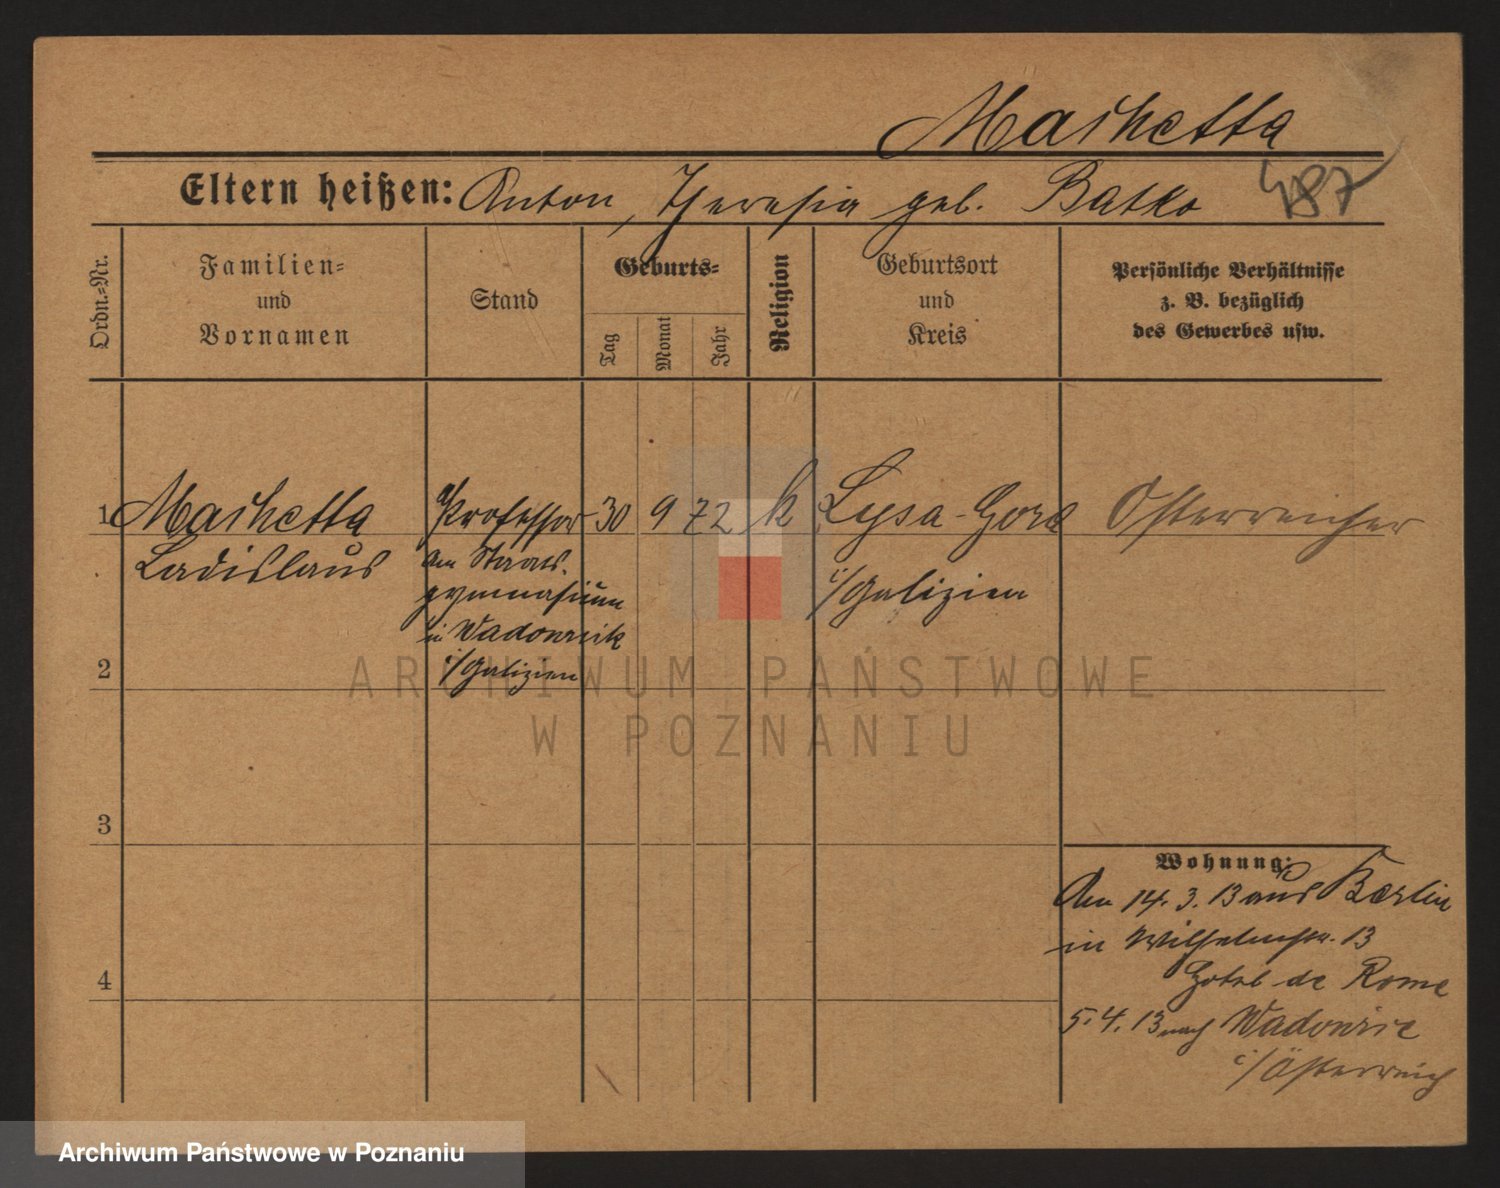 Maihetta
487
Eltern heißen: Anton, Theresia geb. Batko
Ordn.=Nr.
Familien=
und
Vornamen
Stand
Geburts=
Tag
Monat
Jahr
Religion
Geburtsort
und
Kreis
Persönliche Verhältnisse
z. B. bezüglich
des Gewerbes usw.
1 Maihetta Professor 30 9 72 k Lysa-Gora Österreicher
Ladislaus
am Staats-
gymnasium
in Wadowick
i/Galizien
i/Galizien
2
3
4
Wohnung:
Am 14. 3. 13 aus Berlin
in Wilhelmstr. 13
Hotel de Rome
5. 4. 13 nach Wadowice
i/Österreich
ARCHIWUM PAŃSTWOWE
W POZNANIU
Archiwum Państwowe w Poznaniu